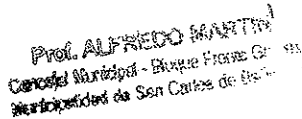 Prof. ALFREDO MARTIN
Concejal Municipal - Bloque Frente
Municipalidad de San Carlos de